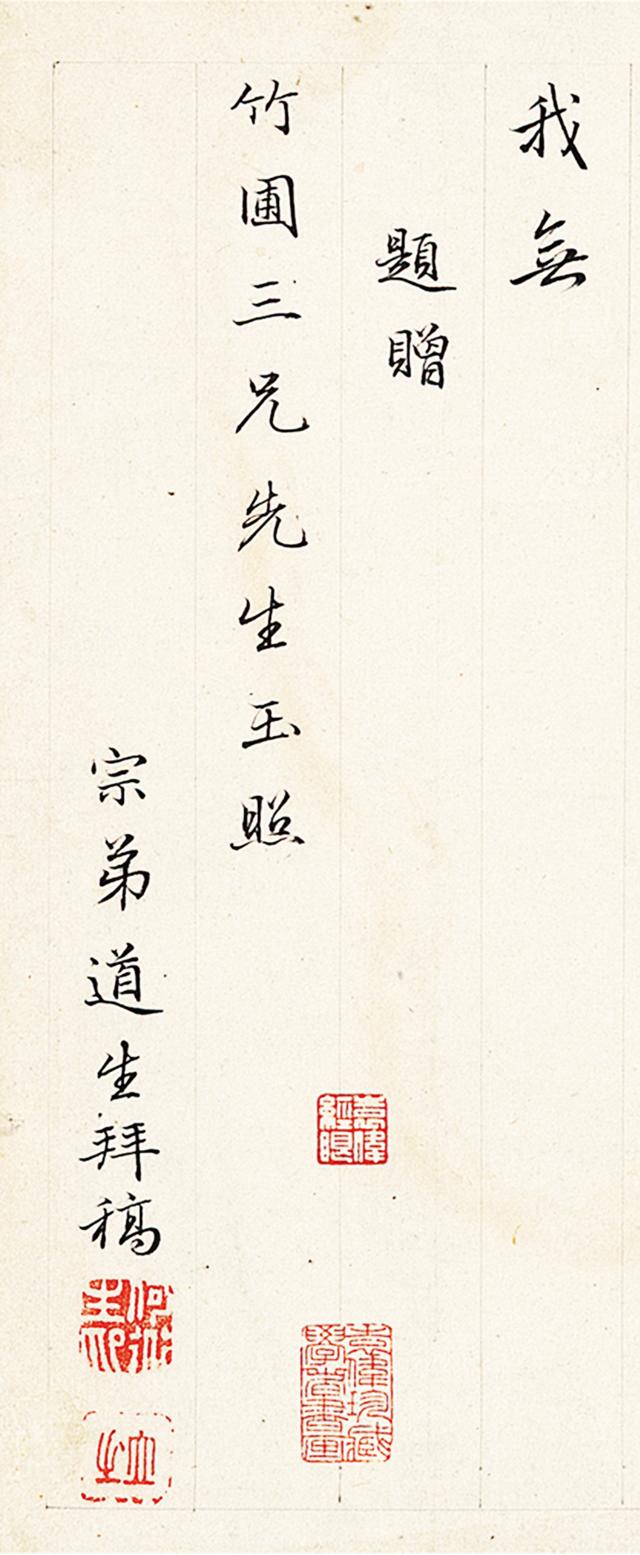 我無
題贈
竹圃三兄先生玉照
宗弟道生拜稿
袁偉
經眼